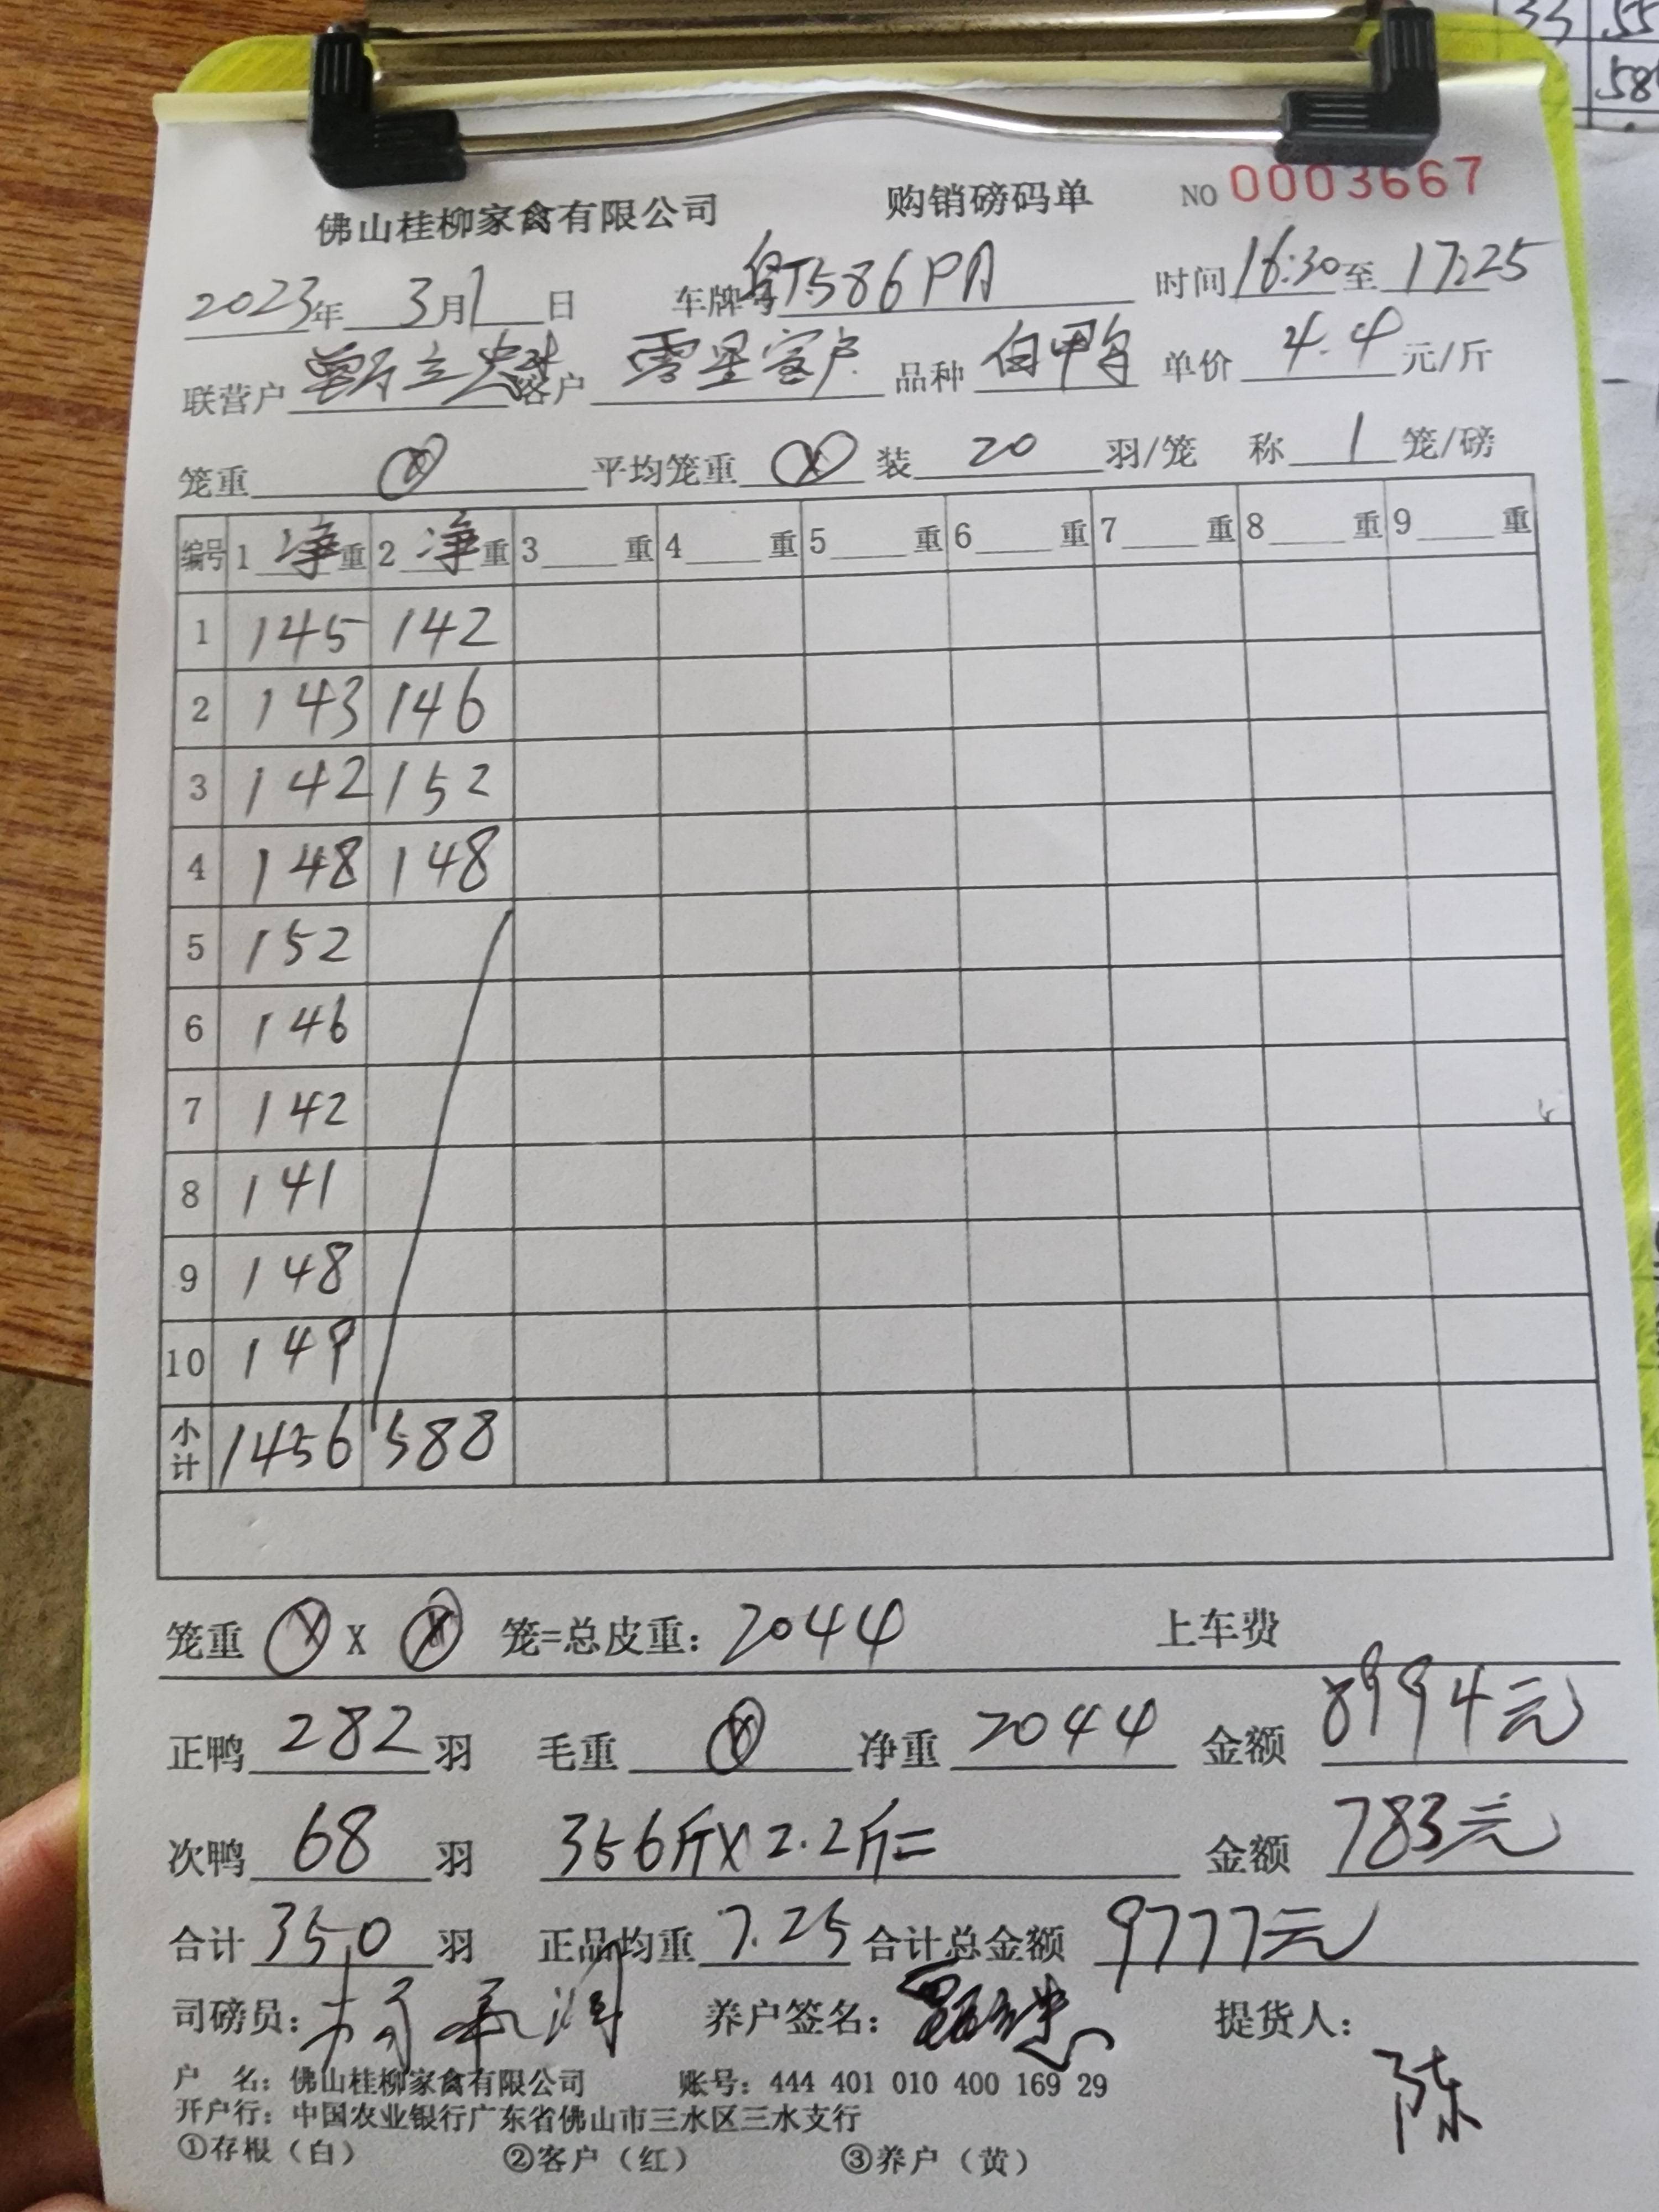 33 55
58
佛山桂柳家禽有限公司 购销磅码单 NO 0003667
2023年 3月1日 车牌号粤T586PA 时间16:30至17:25
联营户 立 客户 零星客户 品种 白鸭 单价 4.4 元/斤
笼重 平均笼重 装 20 羽/笼 称 1 笼/磅
编号 1 净重 2 净重 3 重 4 重 5 重 6 重 7 重 8 重 9 重
1 145 142
2 143 146
3 142 152
4 148 148
5 152
6 146
7 142
8 141
9 148
10 149
小计 1456 588
笼重 X 笼=总皮重: 2044 上车费
正鸭 282 羽 毛重 净重 2044 金额 8994元
次鸭 68 羽 356斤X2.2斤= 金额 783元
合计 350 羽 正品均重 7.25 合计总金额 9777元
司磅员: 养户签名: 提货人: 陈
户 名: 佛山桂柳家禽有限公司 账号: 444 401 010 400 169 29
开户行: 中国农业银行广东省佛山市三水区三水支行
①存根（白） ②客户（红） ③养户（黄）